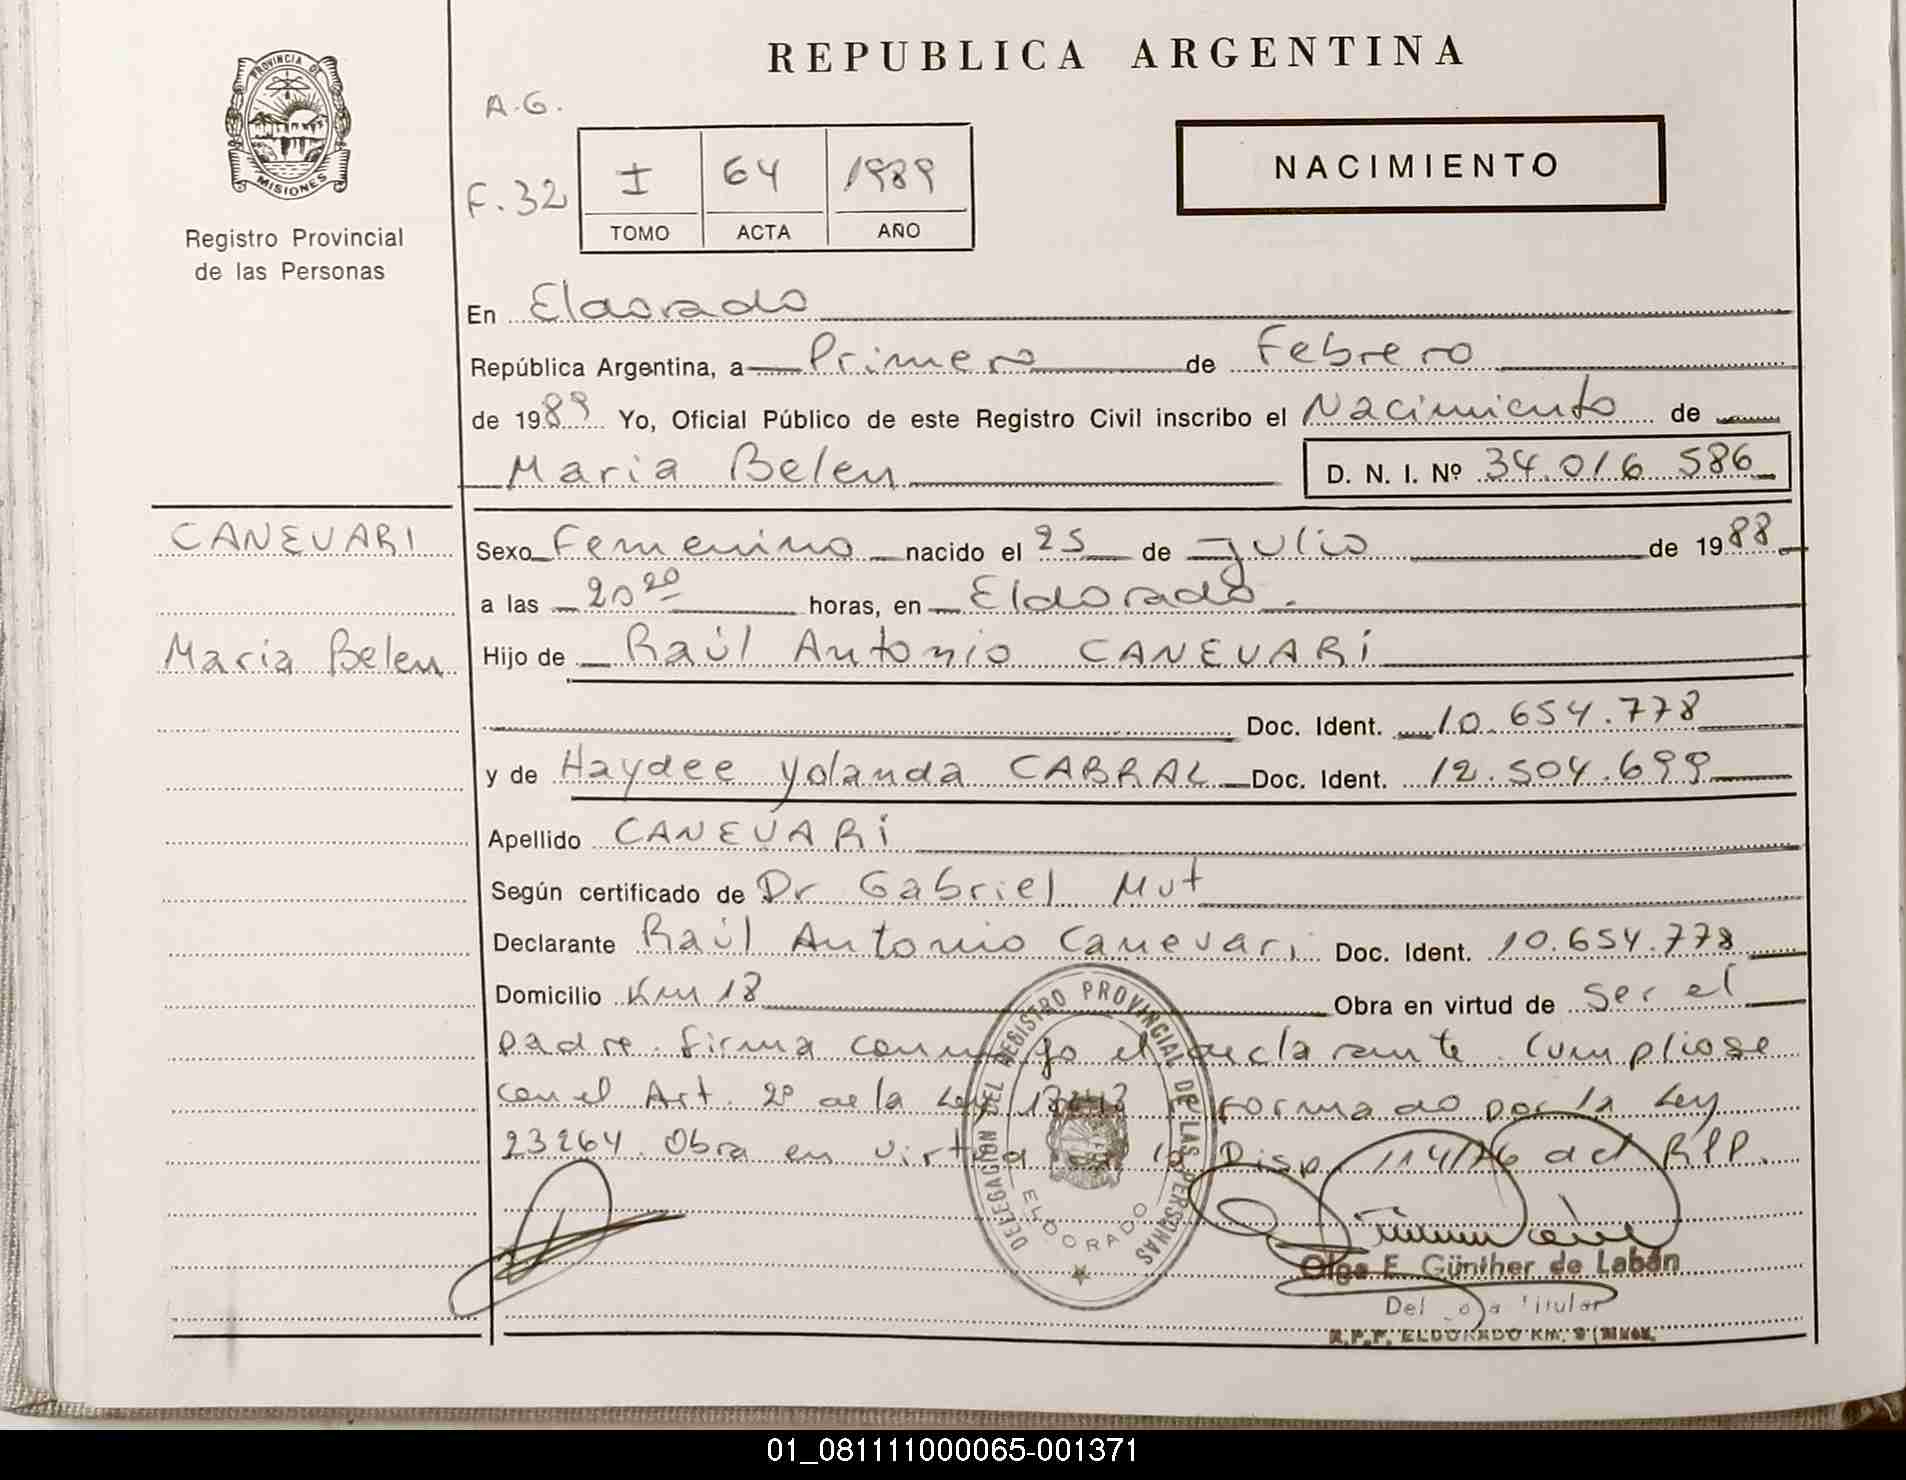 REPUBLICA ARGENTINA
PROVINCIA DE MISIONES
Registro Provincial
de las Personas
A.G.
F. 32
I 64 1989
TOMO ACTA AÑO
NACIMIENTO
En Eldorado
República Argentina, a Primero de Febrero
de 1989 Yo, Oficial Público de este Registro Civil inscribo el Nacimiento de
Maria Belen D. N. I. Nº 34.016 586
CANEVARI
Maria Belen
Sexo Femenino nacido el 25 de Julio de 1988
a las 20 20 horas, en Eldorado.
Hijo de Raúl Antonio CANEVARI
Doc. Ident. 10.654.778
y de Haydee Yolanda CABRAL Doc. Ident. 12.504.699
Apellido CANEVARI
Según certificado de Dr Gabriel Mut
Declarante Raúl Antonio Canevari Doc. Ident. 10.654.778
Domicilio Km 18 Obra en virtud de ser el
padre. firma conmigo el declarante. Cumpliose
con el Art. 2º de la Ley reformado por la Ley
23264. Obra en virtud de la Disp. 114/76 del RPP.
DELEGACION DEL REGISTRO PROVINCIAL DE LAS PERSONAS
ELDORADO
Olga E. Günther de Labán
Titular
R.P.P. ELDORADO KM. 9
01_081111000065-001371